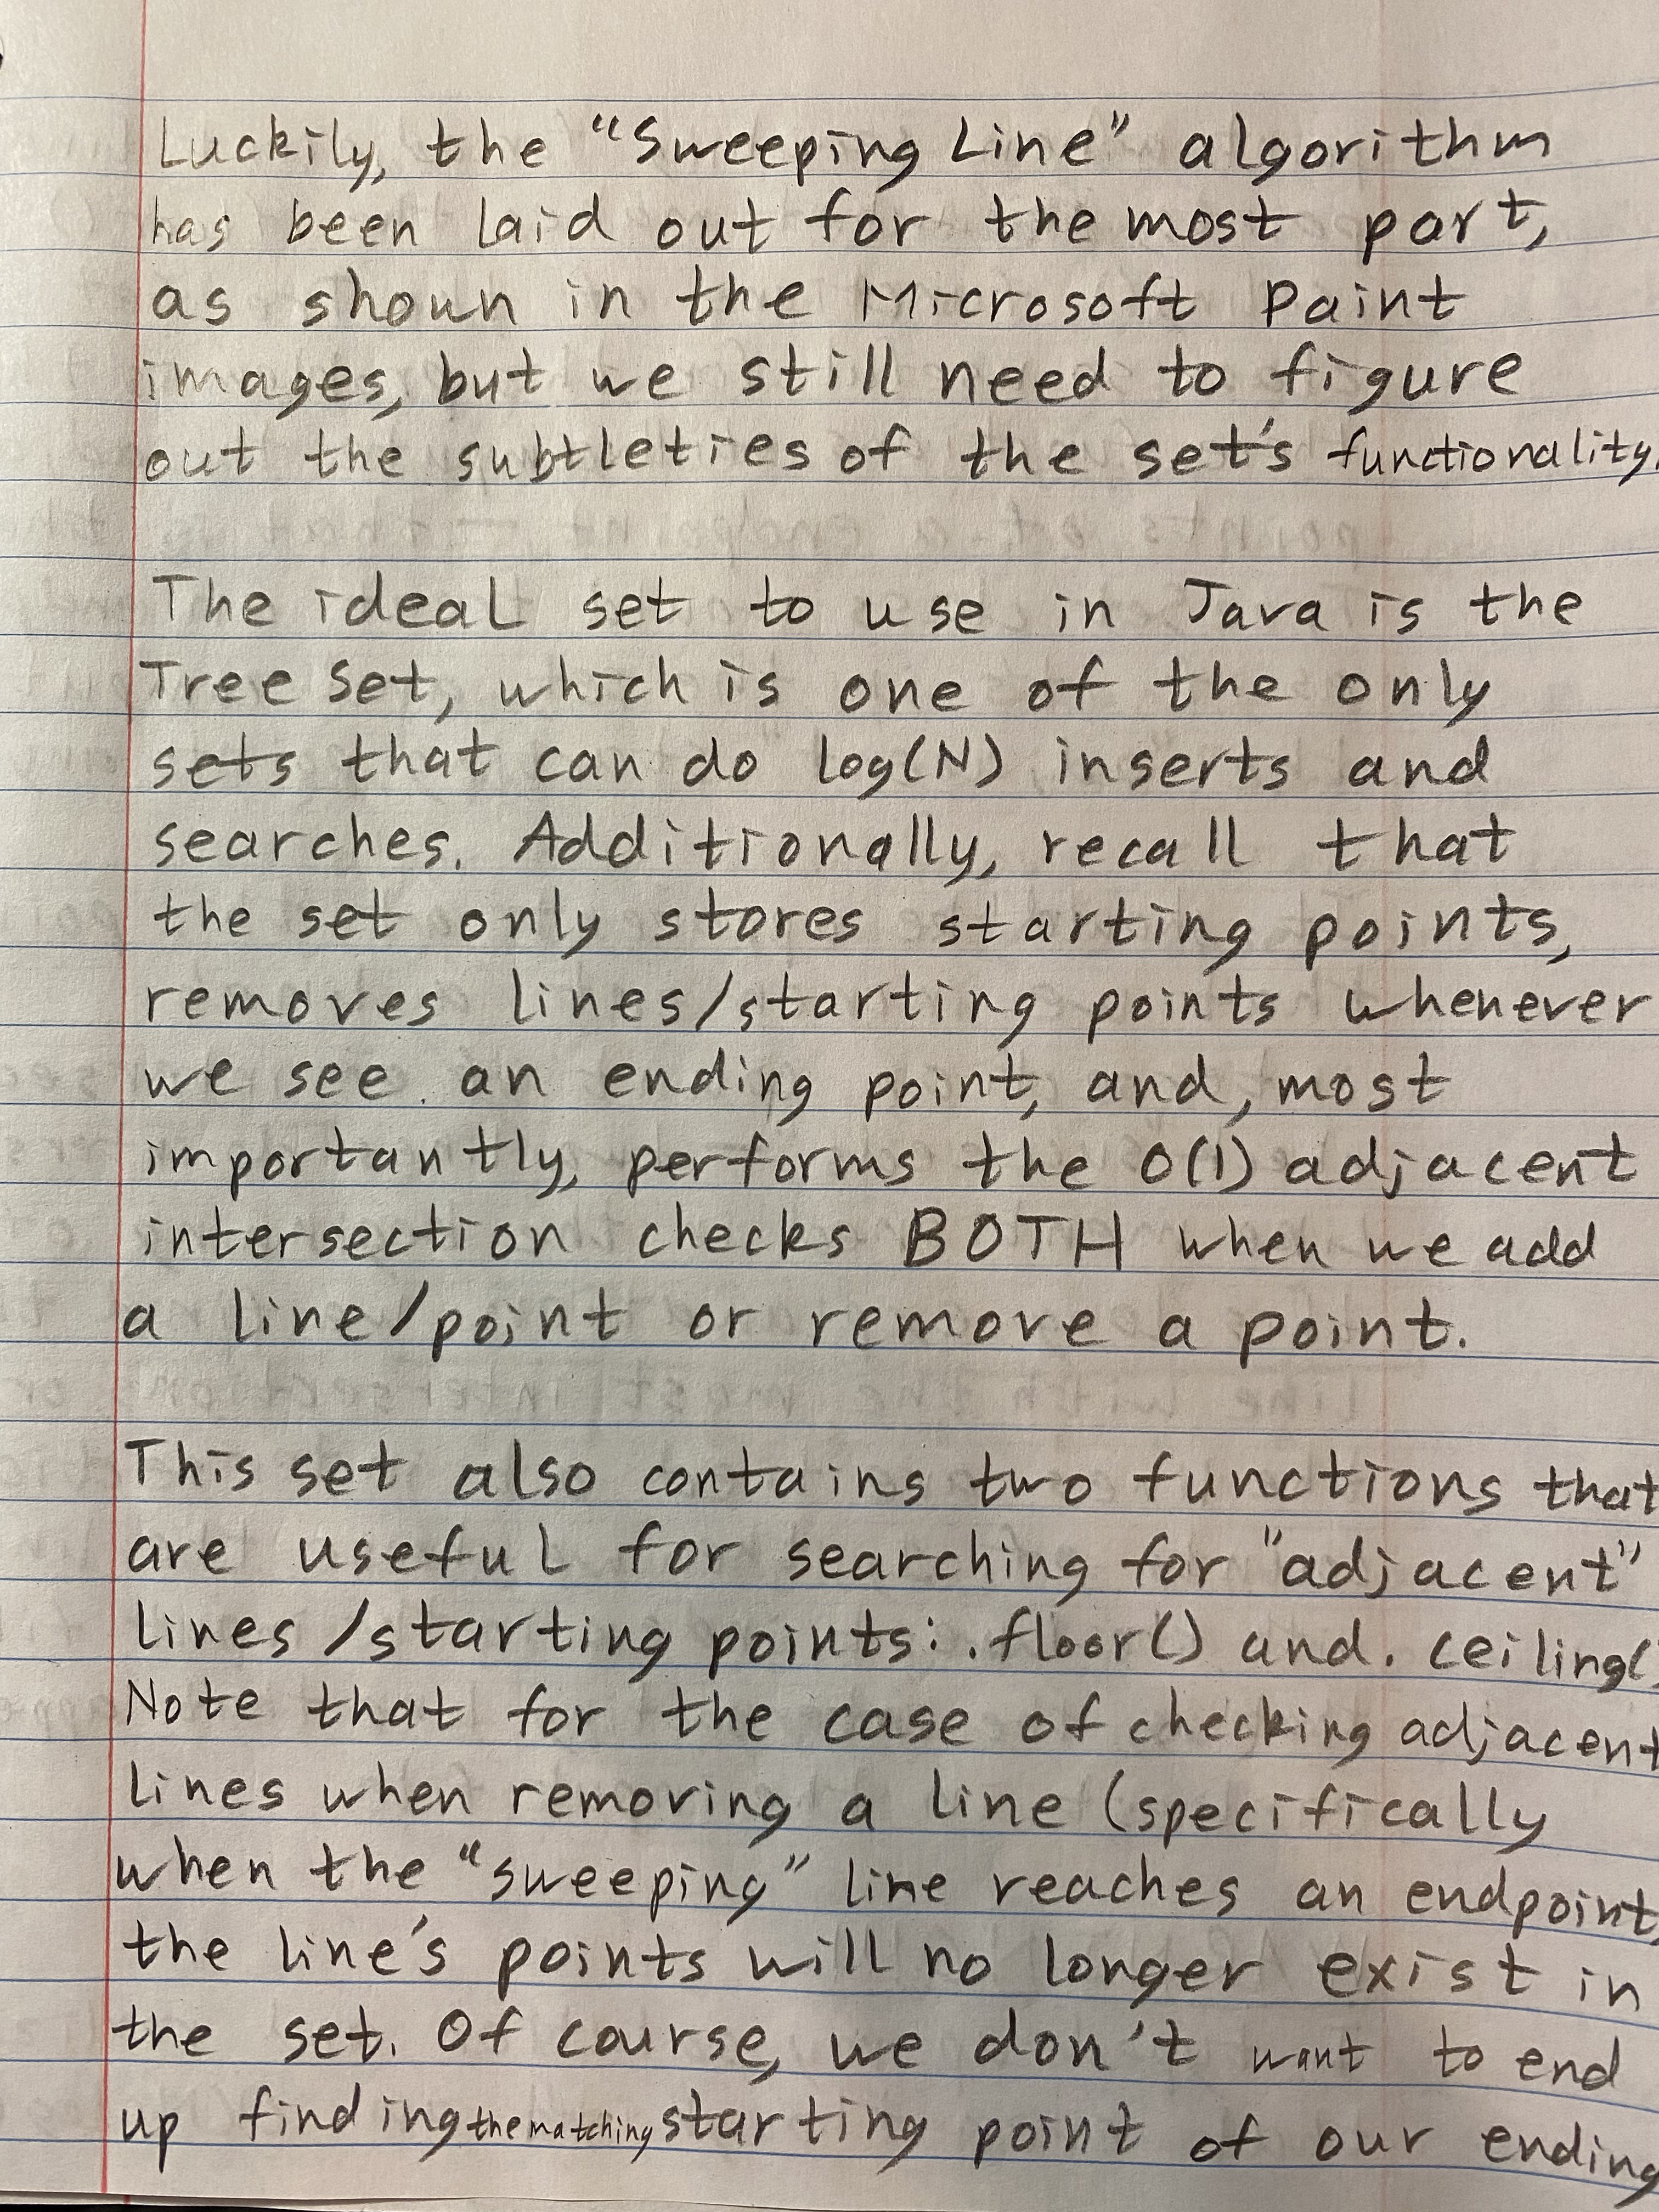 Luckily, the "Sweeping Line" algorithm
has been laid out for the most part,
as shown in the Microsoft Paint
images, but we still need to figure
out the subtleties of the set's functionality.
The ideal set to use in Java is the
Tree Set, which is one of the only
sets that can do log(N) inserts and
searches. Additionally, recall that
the set only stores starting points,
removes lines/starting points whenever
we see an ending point, and, most
importantly, performs the O(1) adjacent
intersection checks BOTH when we add
a line/point or remove a point.
This set also contains two functions that
are useful for searching for "adjacent"
lines/starting points: .floor() and .ceiling(
Note that for the case of checking adjacent
lines when removing a line (specifically
when the "sweeping" line reaches an endpoint,
the line's points will no longer exist in
the set. Of course, we don't want to end
up finding the matching starting point of our ending